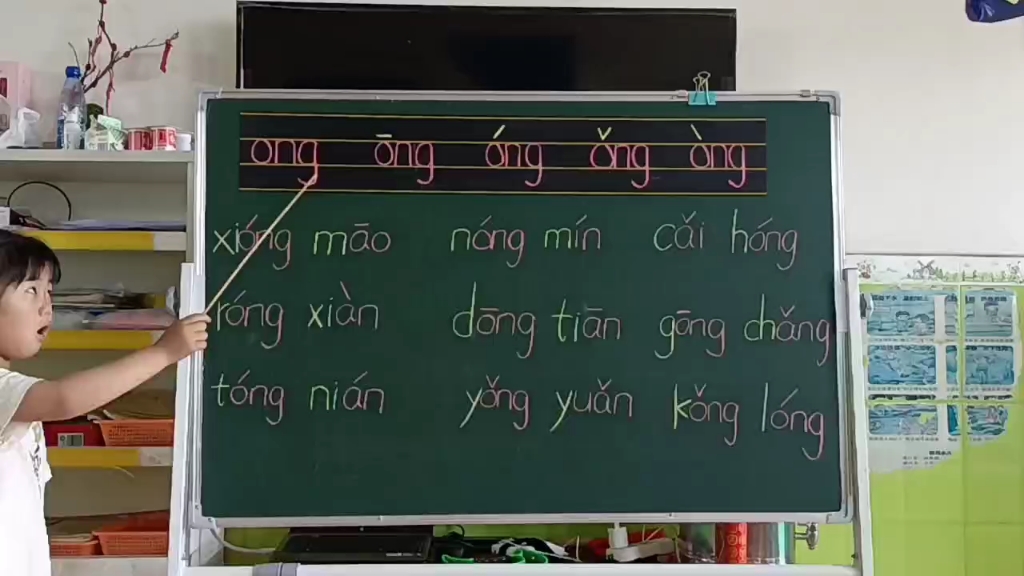 ong ōng óng ǒng òng
xióng māo nóng mín cǎi hóng
róng xiàn dōng tiān gōng chǎng
tóng nián yǒng yuǎn kǒng lóng